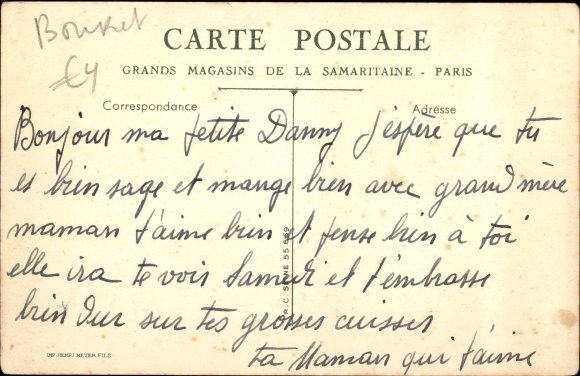 Bouret
€4
CARTE POSTALE
GRANDS MAGASINS DE LA SAMARITAINE - PARIS
Correspondance
Adresse
Bonjour ma petite Danny j'espère que tu
es bien sage et mange bien avec grand mère
maman t'aime bien et pense bien à toi
elle ira te voir Samedi et t'embrasse
bien dur sur tes grosses cuisses
ta Maman qui t'aime
R.C. SEINE 55 669